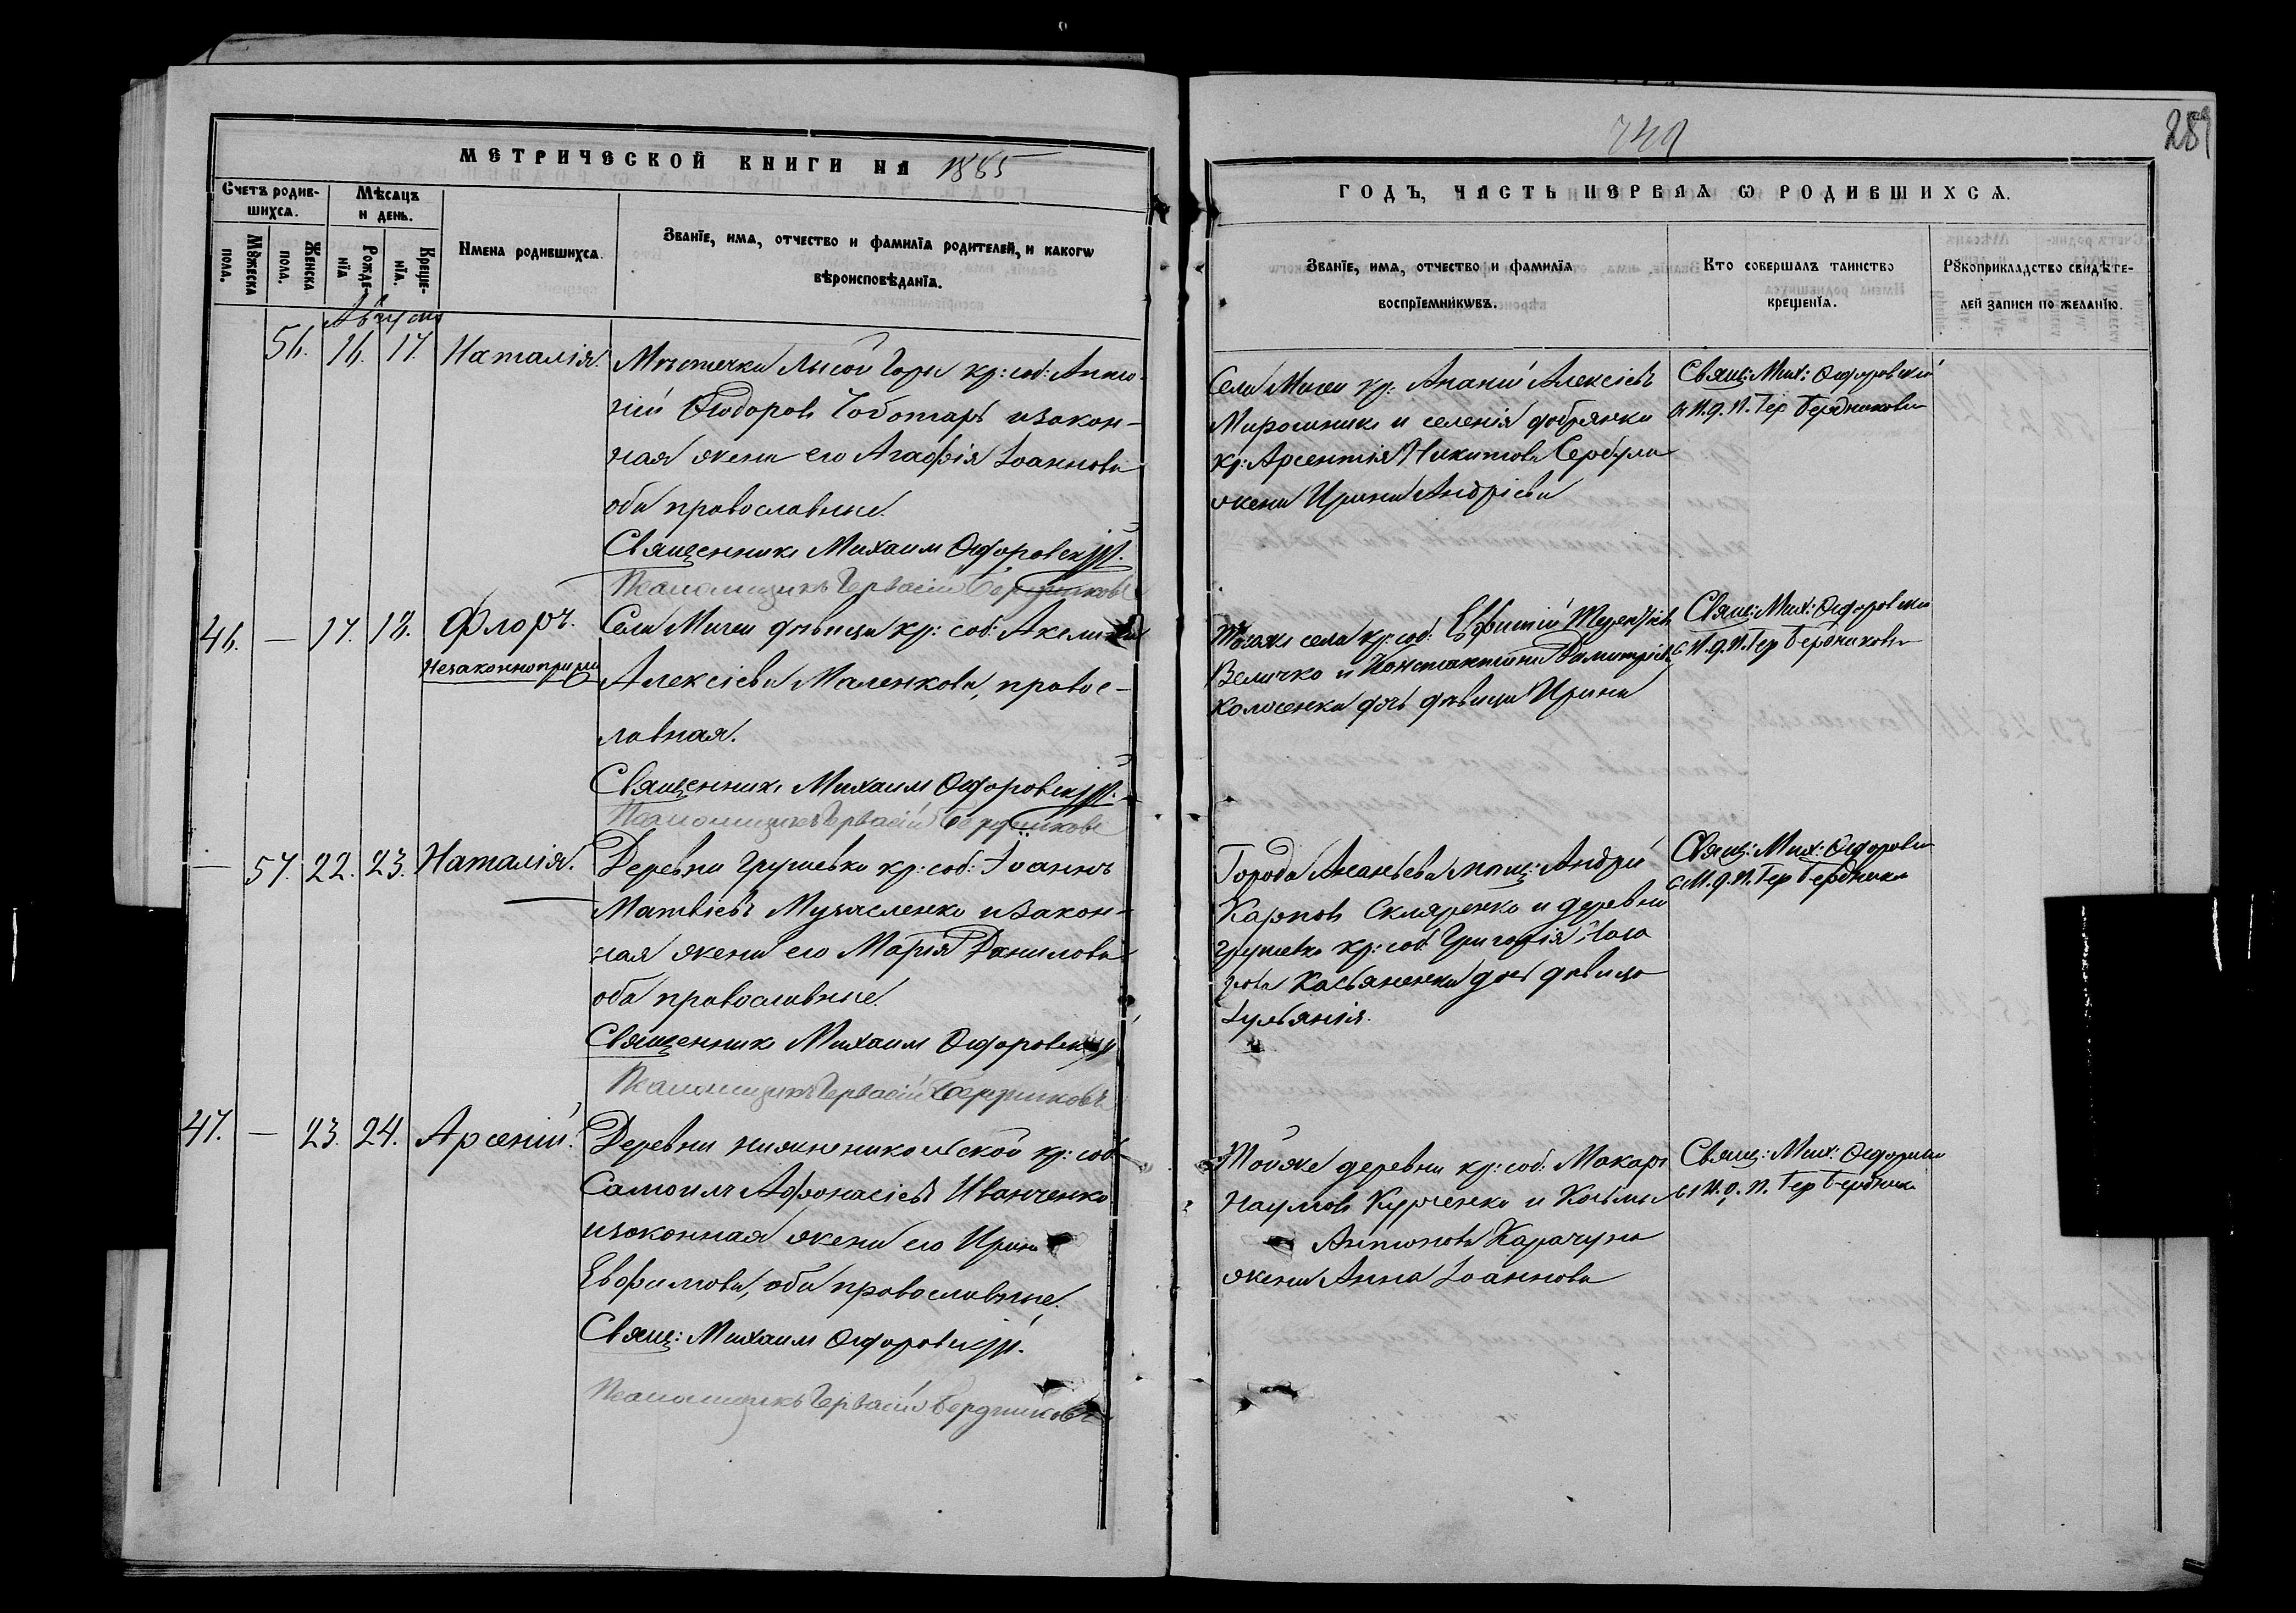 749
289
МЕТРИЧЕСКОЙ КНИГИ НА 1885
ГОДЪ, ЧАСТЬ ПЕРВАѦ Ѡ РОДИВШИХСѦ.
Счетъ родив-
шихсѧ.
Мѣсѧцъ
и день.
Мꙋжеска
пола.
Женска
пола.
Рожде-
нїѧ
Креще-
нїѧ.
Имена родившихсѧ.
Званїе, имѧ, отчество и фамилїѧ родителей, и какогѡ
вѣроисповѣданїѧ.
Званїе, имѧ, отчество и фамилїѧ
воспрїемникѡвъ.
Кто совершалъ таинство
крещенїѧ.
Рꙋкоприкладство свидѣте-
лей записи по желанїю.
Августъ
56. 16. 17. Наталія.
Мѣстечка Лысой Горы кр: соб: Анто-
ній Ѳеодоровъ Чоботарь и закон-
ная жена его Агафія Іоаннова
оба православные.
Священникъ Михаилъ
Псаломщикъ Гервасій Бердниковъ
Села Мигеи кр: Ананій Алексіевъ
Мирошникъ и селенія Добрянки
кр: Арсентія Никитова Сербула
жена Ирина Андріева
Свящ: Мих:
съ И. д. П. Гер. Бердниковы
46. — 17. 18. Флоръ.
Незаконнопри
Села Мигеи дѣвица кр: соб: Акелина
Алексіева Маленкова, правос-
лавная.
Священникъ Михаилъ
Псаломщикъ Гервасій Бердниковъ
Тогожъ села кр: соб: Евфимій
Величко и Константина Димитріева
дочь дѣвица Ирина
Свящ: Мих:
съ И. д. П. Гер Бердниковы
— 57. 22. 23. Наталія.
Деревни Грушевки кр: соб: Іоаннъ
Матвіевъ и закон-
ная жена его Марія Данилова
оба православные.
Священникъ Михаилъ
Псаломщикъ Гервасій Бердниковъ
Города Ананьева мѣщ: Андрій
Карповъ Скляренко и деревни
Грушевки кр: соб: Григорія
Касьяненка дочь дѣвица
Іульянія.
Свящ: Мих:
съ И. д. П. Гер Бердник
47. — 23. 24. Арсеній.
Деревни кр: соб:
Самоилъ Афонасіевъ Иванченко
и законная жена его Ирина
Евфимова, оба православные.
Свящ: Михаилъ
Псаломщикъ Гервасій Бердниковъ
Тойже деревни кр: соб: Макаръ
Наумовъ Курченко и Косьмы
Антонова Карачуна
жена Анна Іоаннова
Свящ: Мих:
съ И. д. П. Гер Бердник